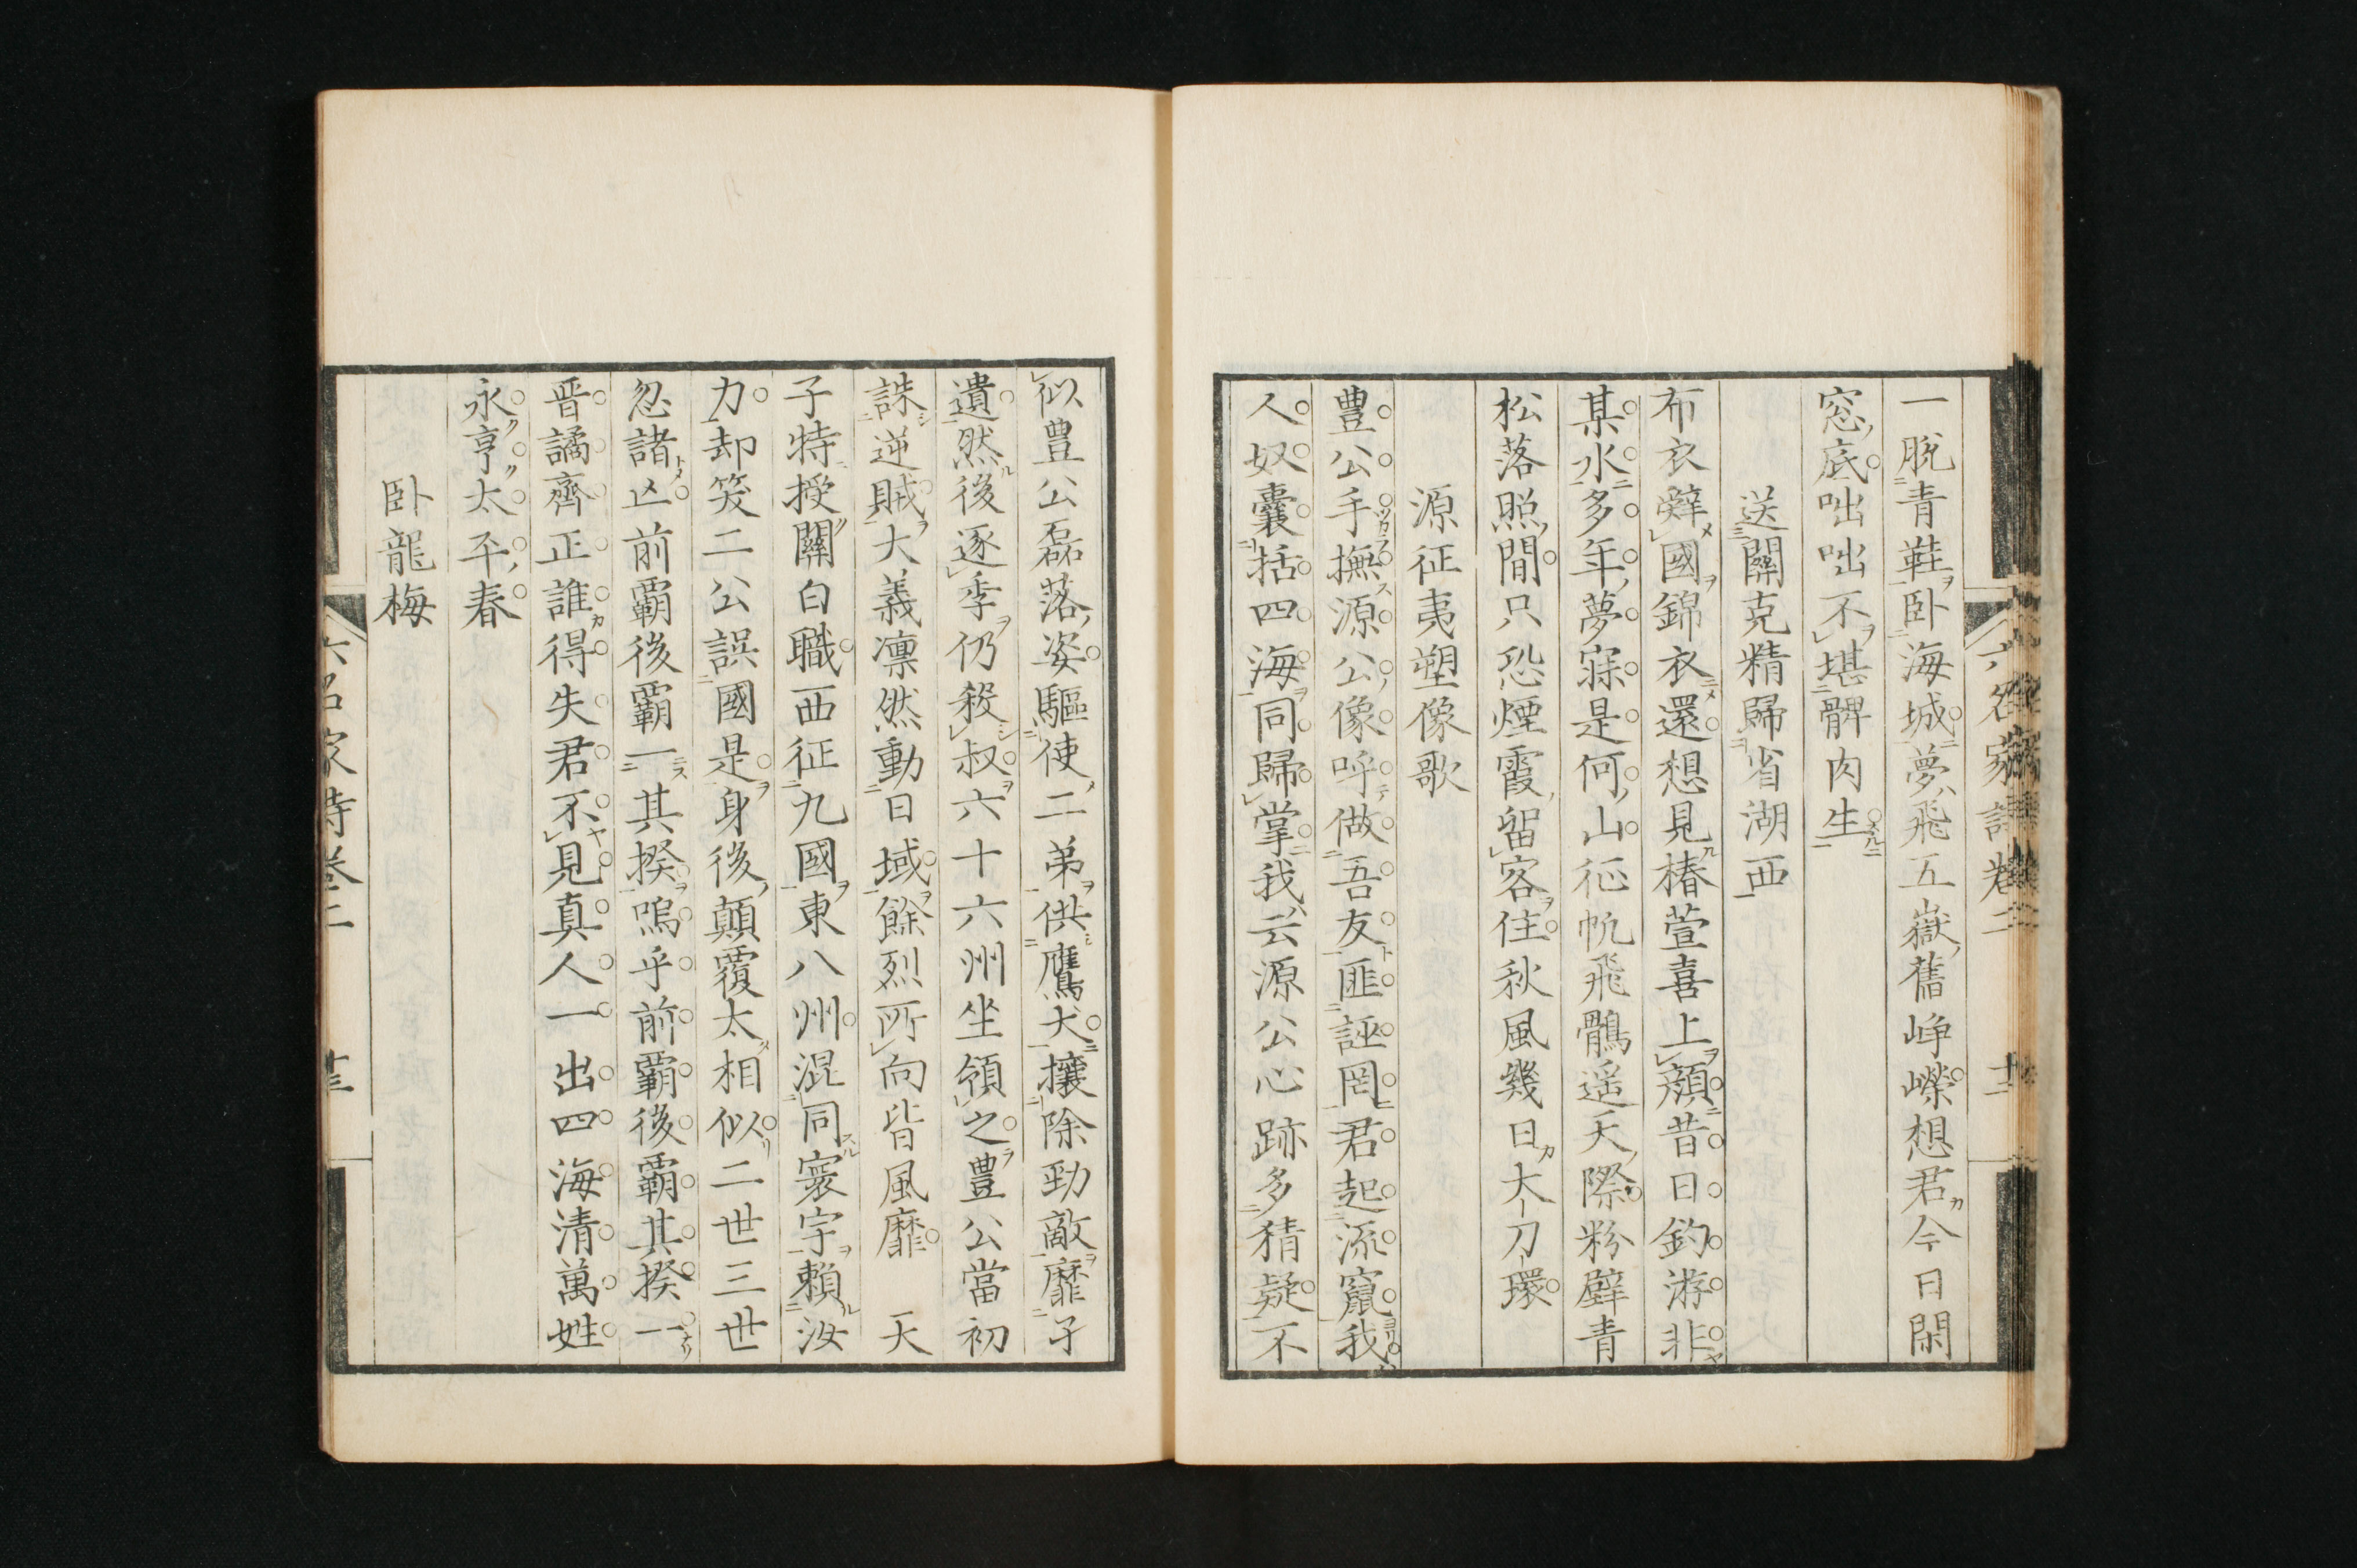 一脫青鞋卧海城夢飛五嶽舊崢嶸想君今日閑
窓底咄咄不堪髀肉生
送關克精歸省湖西
布衣辭國錦衣還想見椿萱喜上顏昔日釣游非
某水多年夢寐是何山征帆飛鶻遥天際粉壁青
松落照間只恐煙霞留客住秋風幾日大刀環
源征夷塑像歌
豊公手撫源公像呼做吾友匪誣罔君起流竄我
人奴囊括四海同歸掌我云源公心跡多猜疑不
似豊公磊落姿驅使二弟供鷹犬攘除勁敵靡孑
遺然後逐季仍殺叔六十六州坐領之豊公當初
誅逆賊大義凛然動日域餘烈所向皆風靡 天
子特授關白職西征九國東八州混同寰宇賴汝
力却笑二公誤國是身後顛覆太相似二世三世
忽諸亾前覇後覇一其揆嗚乎前覇後覇其揆一
晋譎齊正誰得失君不見真人一出四海清萬姓
永亨太平春
卧龍梅
六名家詩卷二